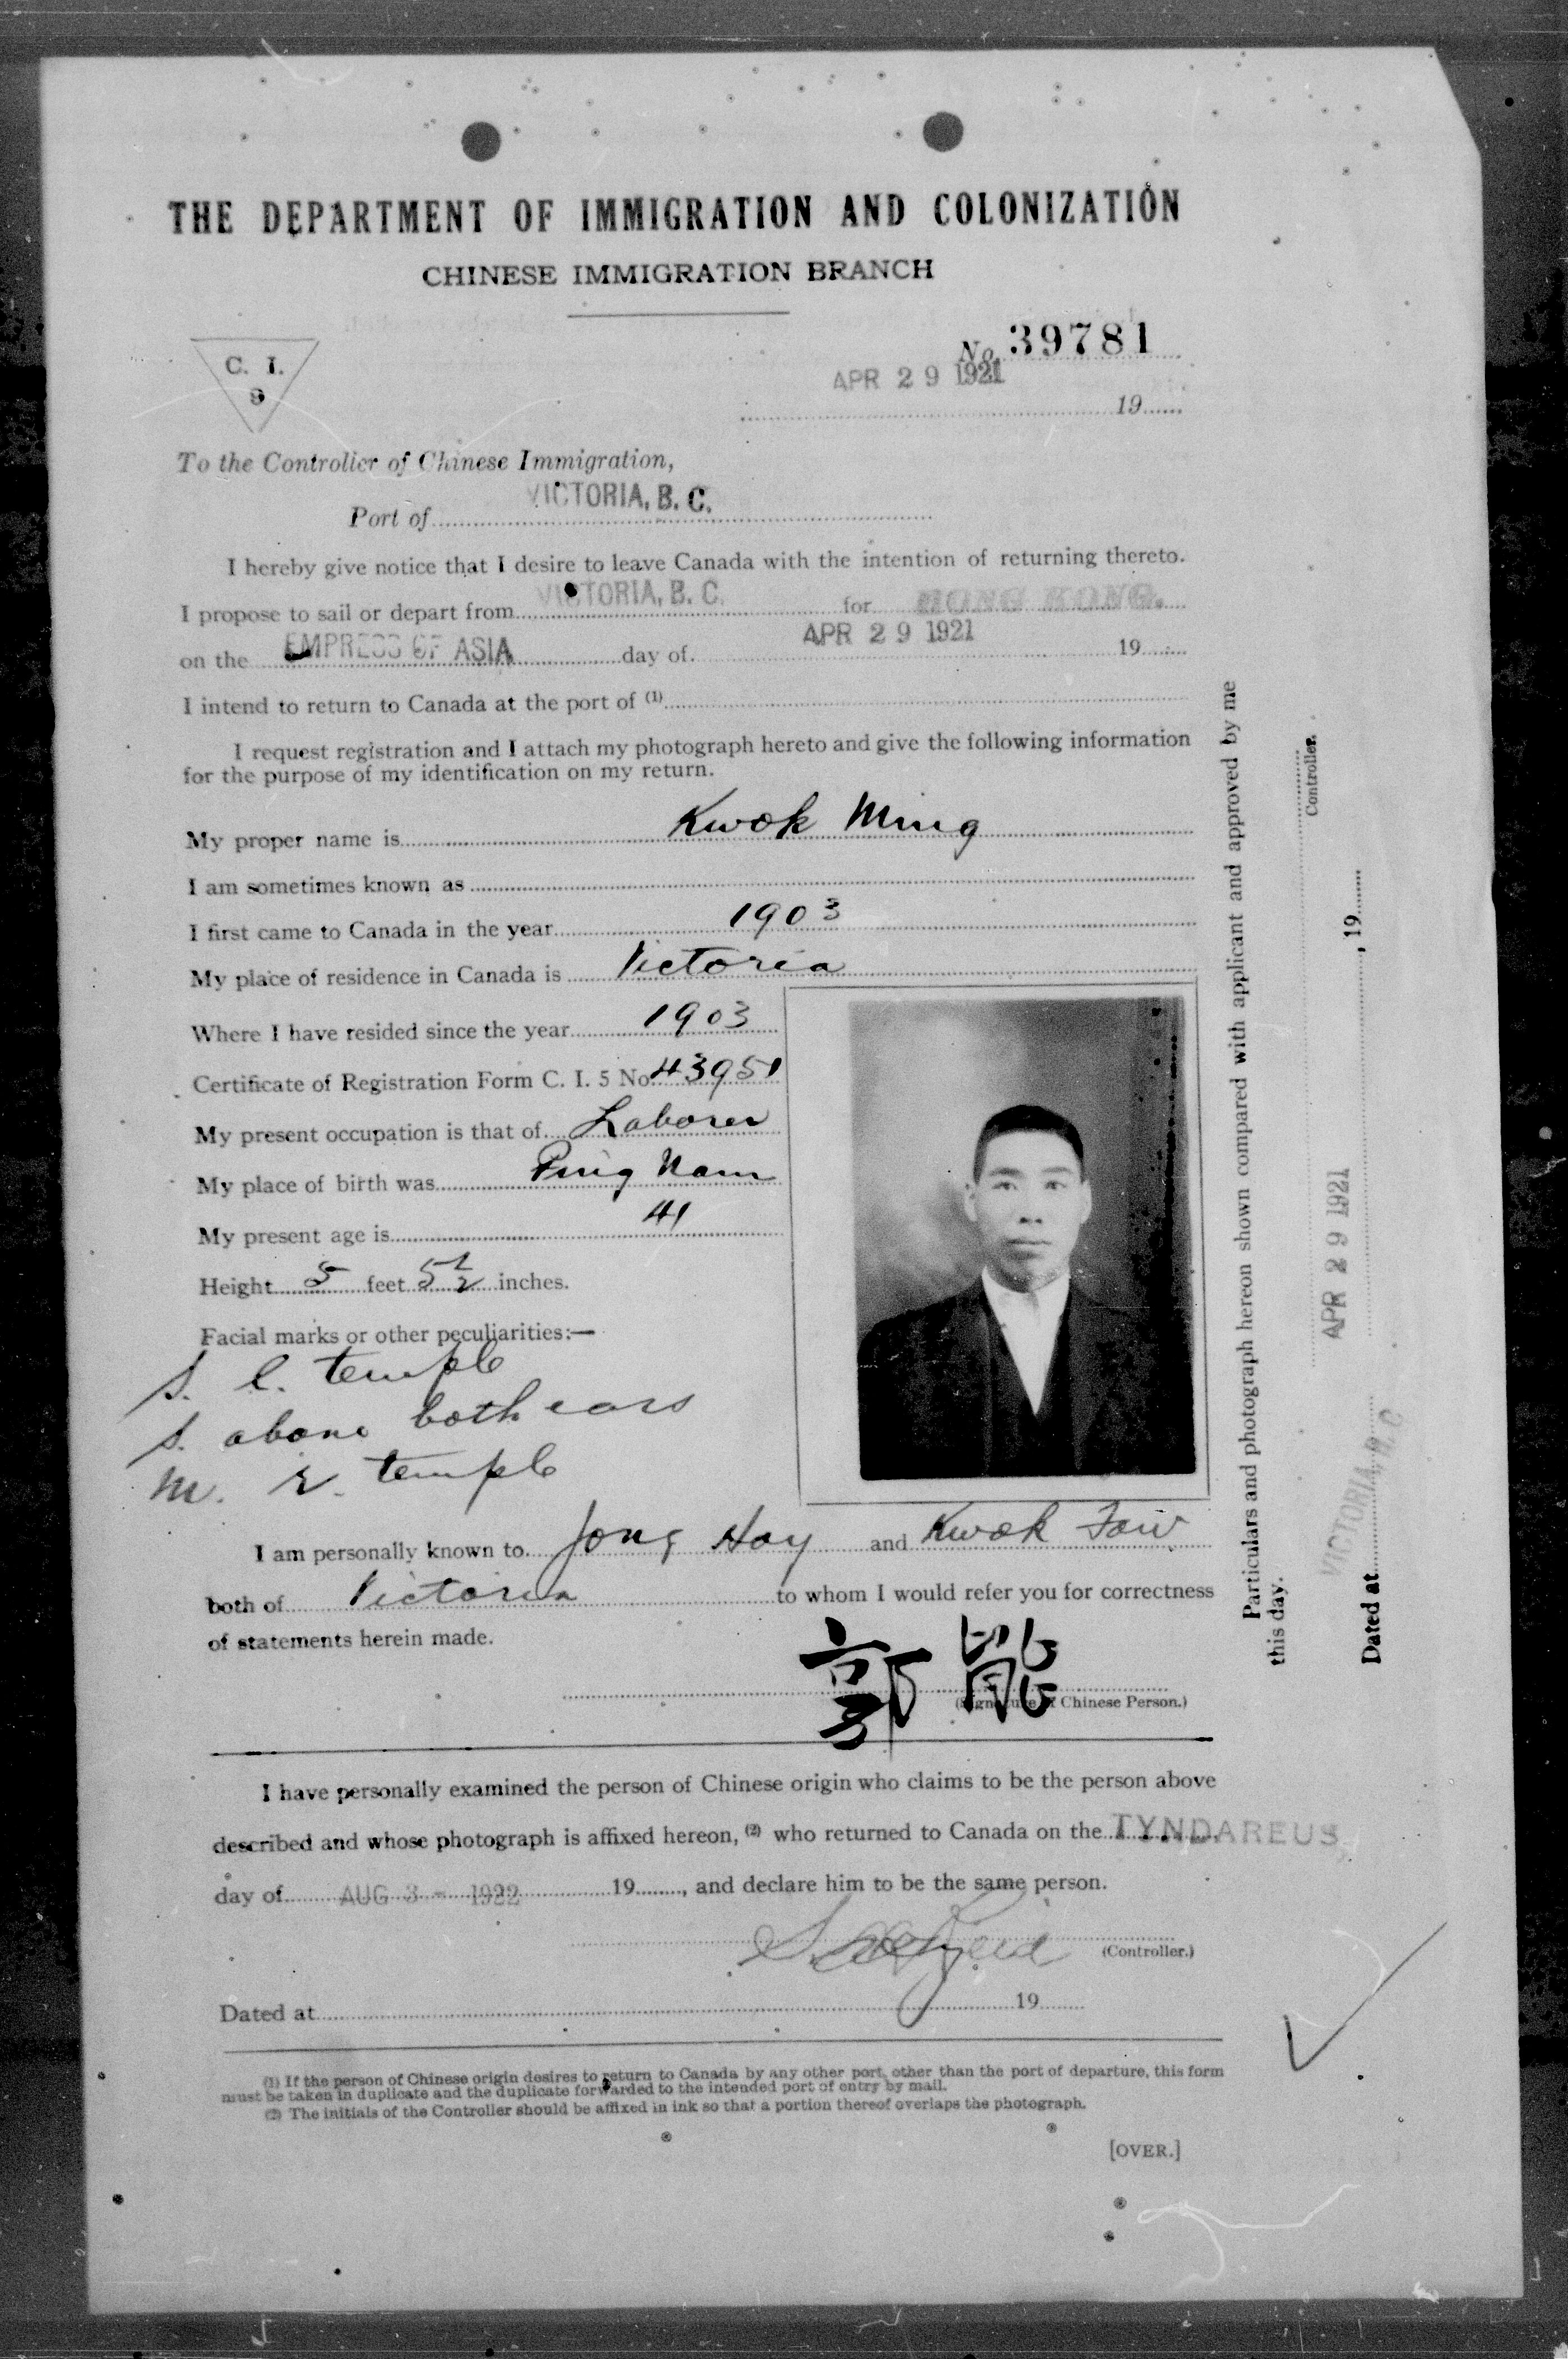 THE DEPARTMENT OF IMMIGRATION AND COLONIZATION
CHINESE IMMIGRATION BRANCH
C. I.
9
No. 39781
APR 29 1921
19
To the Controller of Chinese Immigration,
VICTORIA, B. C.
Port of
I hereby give notice that I desire to leave Canada with the intention of returning thereto.
I propose to sail or depart from VICTORIA, B. C. for HONG KONG.
on the EMPRESS OF ASIA day of APR 29 1921 19
I intend to return to Canada at the port of (1)
I request registration and I attach my photograph hereto and give the following information
for the purpose of my identification on my return.
My proper name is Kwok Ming
I am sometimes known as
I first came to Canada in the year 1903
My place of residence in Canada is Victoria
Where I have resided since the year 1903
Certificate of Registration Form C. I. 5 No. 43951
My present occupation is that of Laborer
My place of birth was Ping Nam
My present age is 41
Height 5 feet 5 1/2 inches.
Facial marks or other peculiarities:—
S. l. temple
S. above both ears
M. r. temple
I am personally known to Jong Hoy and Kwok Fow
both of Victoria to whom I would refer you for correctness
of statements herein made.
郭
(Signature of Chinese Person.)
I have personally examined the person of Chinese origin who claims to be the person above
described and whose photograph is affixed hereon, (2) who returned to Canada on the TYNDAREUS
day of AUG 3 - 1922 19, and declare him to be the same person.
(Controller.)
Dated at 19
(1) If the person of Chinese origin desires to return to Canada by any other port, other than the port of departure, this form
must be taken in duplicate and the duplicate forwarded to the intended port of entry by mail.
(2) The initials of the Controller should be affixed in ink so that a portion thereof overlaps the photograph.
[OVER.]
Particulars and photograph hereon shown compared with applicant and approved by me
this day.
APR 29 1921
Controller.
VICTORIA, B. C
Dated at , 19